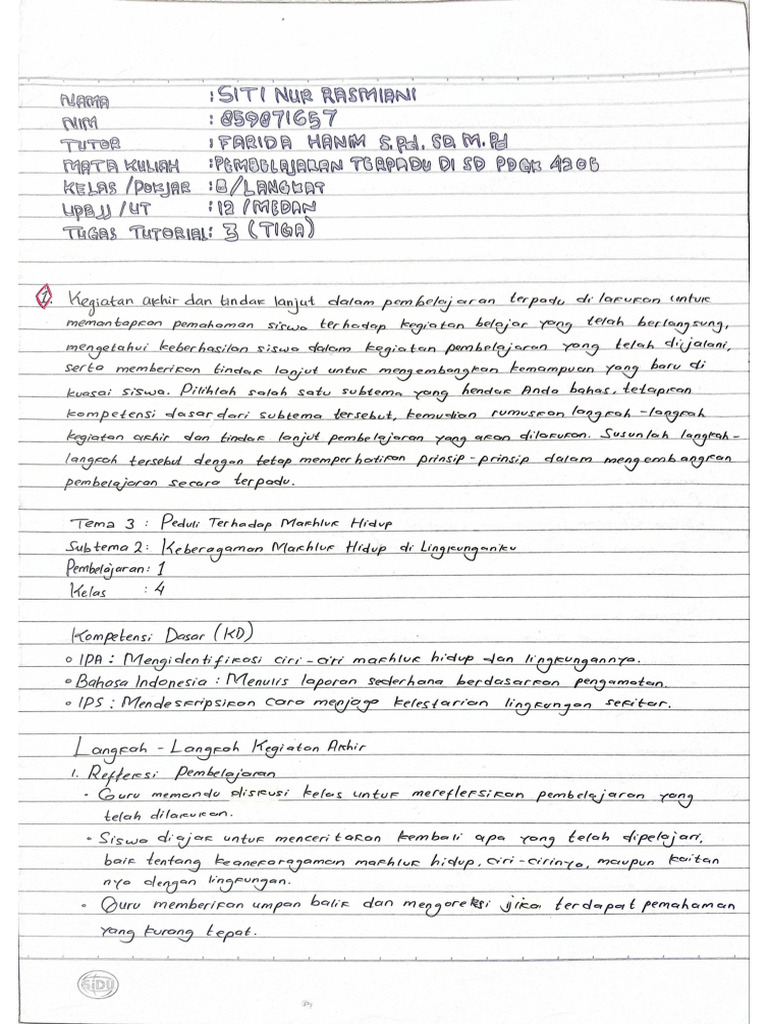 NAMA : SITI NUR RASMIANI
NIM : 859871657
TUTOR : FARIDA HANIM S.Pd, SD M.Pd
MATA KULIAH : PEMBELAJARAN TERPADU DI SD PDGK 4205
KELAS /POKJAR : B/LANGKAT
UPBJJ /UT : 12 /MEDAN
TUGAS TUTORIAL: 3 (TIGA)
1. Kegiatan akhir dan tindak lanjut dalam pembelajaran terpadu di lakukan untuk
memantapkan pemahaman siswa terhadap kegiatan belajar yang telah berlangsung,
mengetahui keberhasilan siswa dalam kegiatan pembelajaran yang telah dijalani,
serta memberikan tindak lanjut untuk mengembangkan kemampuan yang baru di
kuasai siswa. Pilihlah salah satu subtema yang hendak Anda bahas, tetapkan
kompetensi dasar dari subtema tersebut, kemudian rumuskan langkah-langkah
kegiatan akhir dan tindak lanjut pembelajaran yang akan dilakukan. Susunlah langkah-
langkah tersebut dengan tetap memperhatikan prinsip-prinsip dalam mengembangkan
pembelajaran secara terpadu.
Tema 3 : Peduli Terhadap Makhluk Hidup
Subtema 2 : Keberagaman Makhluk Hidup di Lingkunganku
Pembelajaran : 1
Kelas : 4
Kompetensi Dasar (KD)
o IPA : Mengidentifikasi ciri-ciri makhluk hidup dan lingkungannya.
o Bahasa Indonesia : Menulis laporan sederhana berdasarkan pengamatan.
o IPS : Mendeskripsikan cara menjaga kelestarian lingkungan sekitar.
Langkah - Langkah Kegiatan Akhir
1. Refleksi Pembelajaran
• Guru memandu diskusi kelas untuk merefleksikan pembelajaran yang
telah dilakukan.
• Siswa diajak untuk menceritakan kembali apa yang telah dipelajari,
baik tentang keanekaragaman makhluk hidup, ciri-cirinya, maupun kaitan
nya dengan lingkungan.
• Guru memberikan umpan balik dan mengoreksi jika terdapat pemahaman
yang kurang tepat.
SIDU